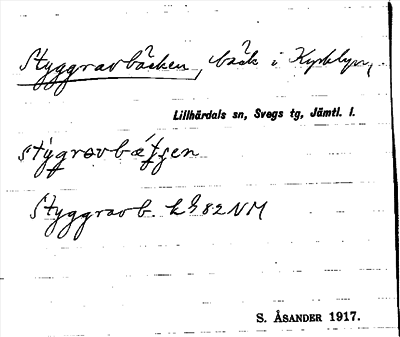 Styggravbäcken, bäck i Kyrkbyn,
Lillhärdals sn, Svegs tg, Jämtl. l.
Styggravb. 82 NM
S. ÅSANDER 1917.